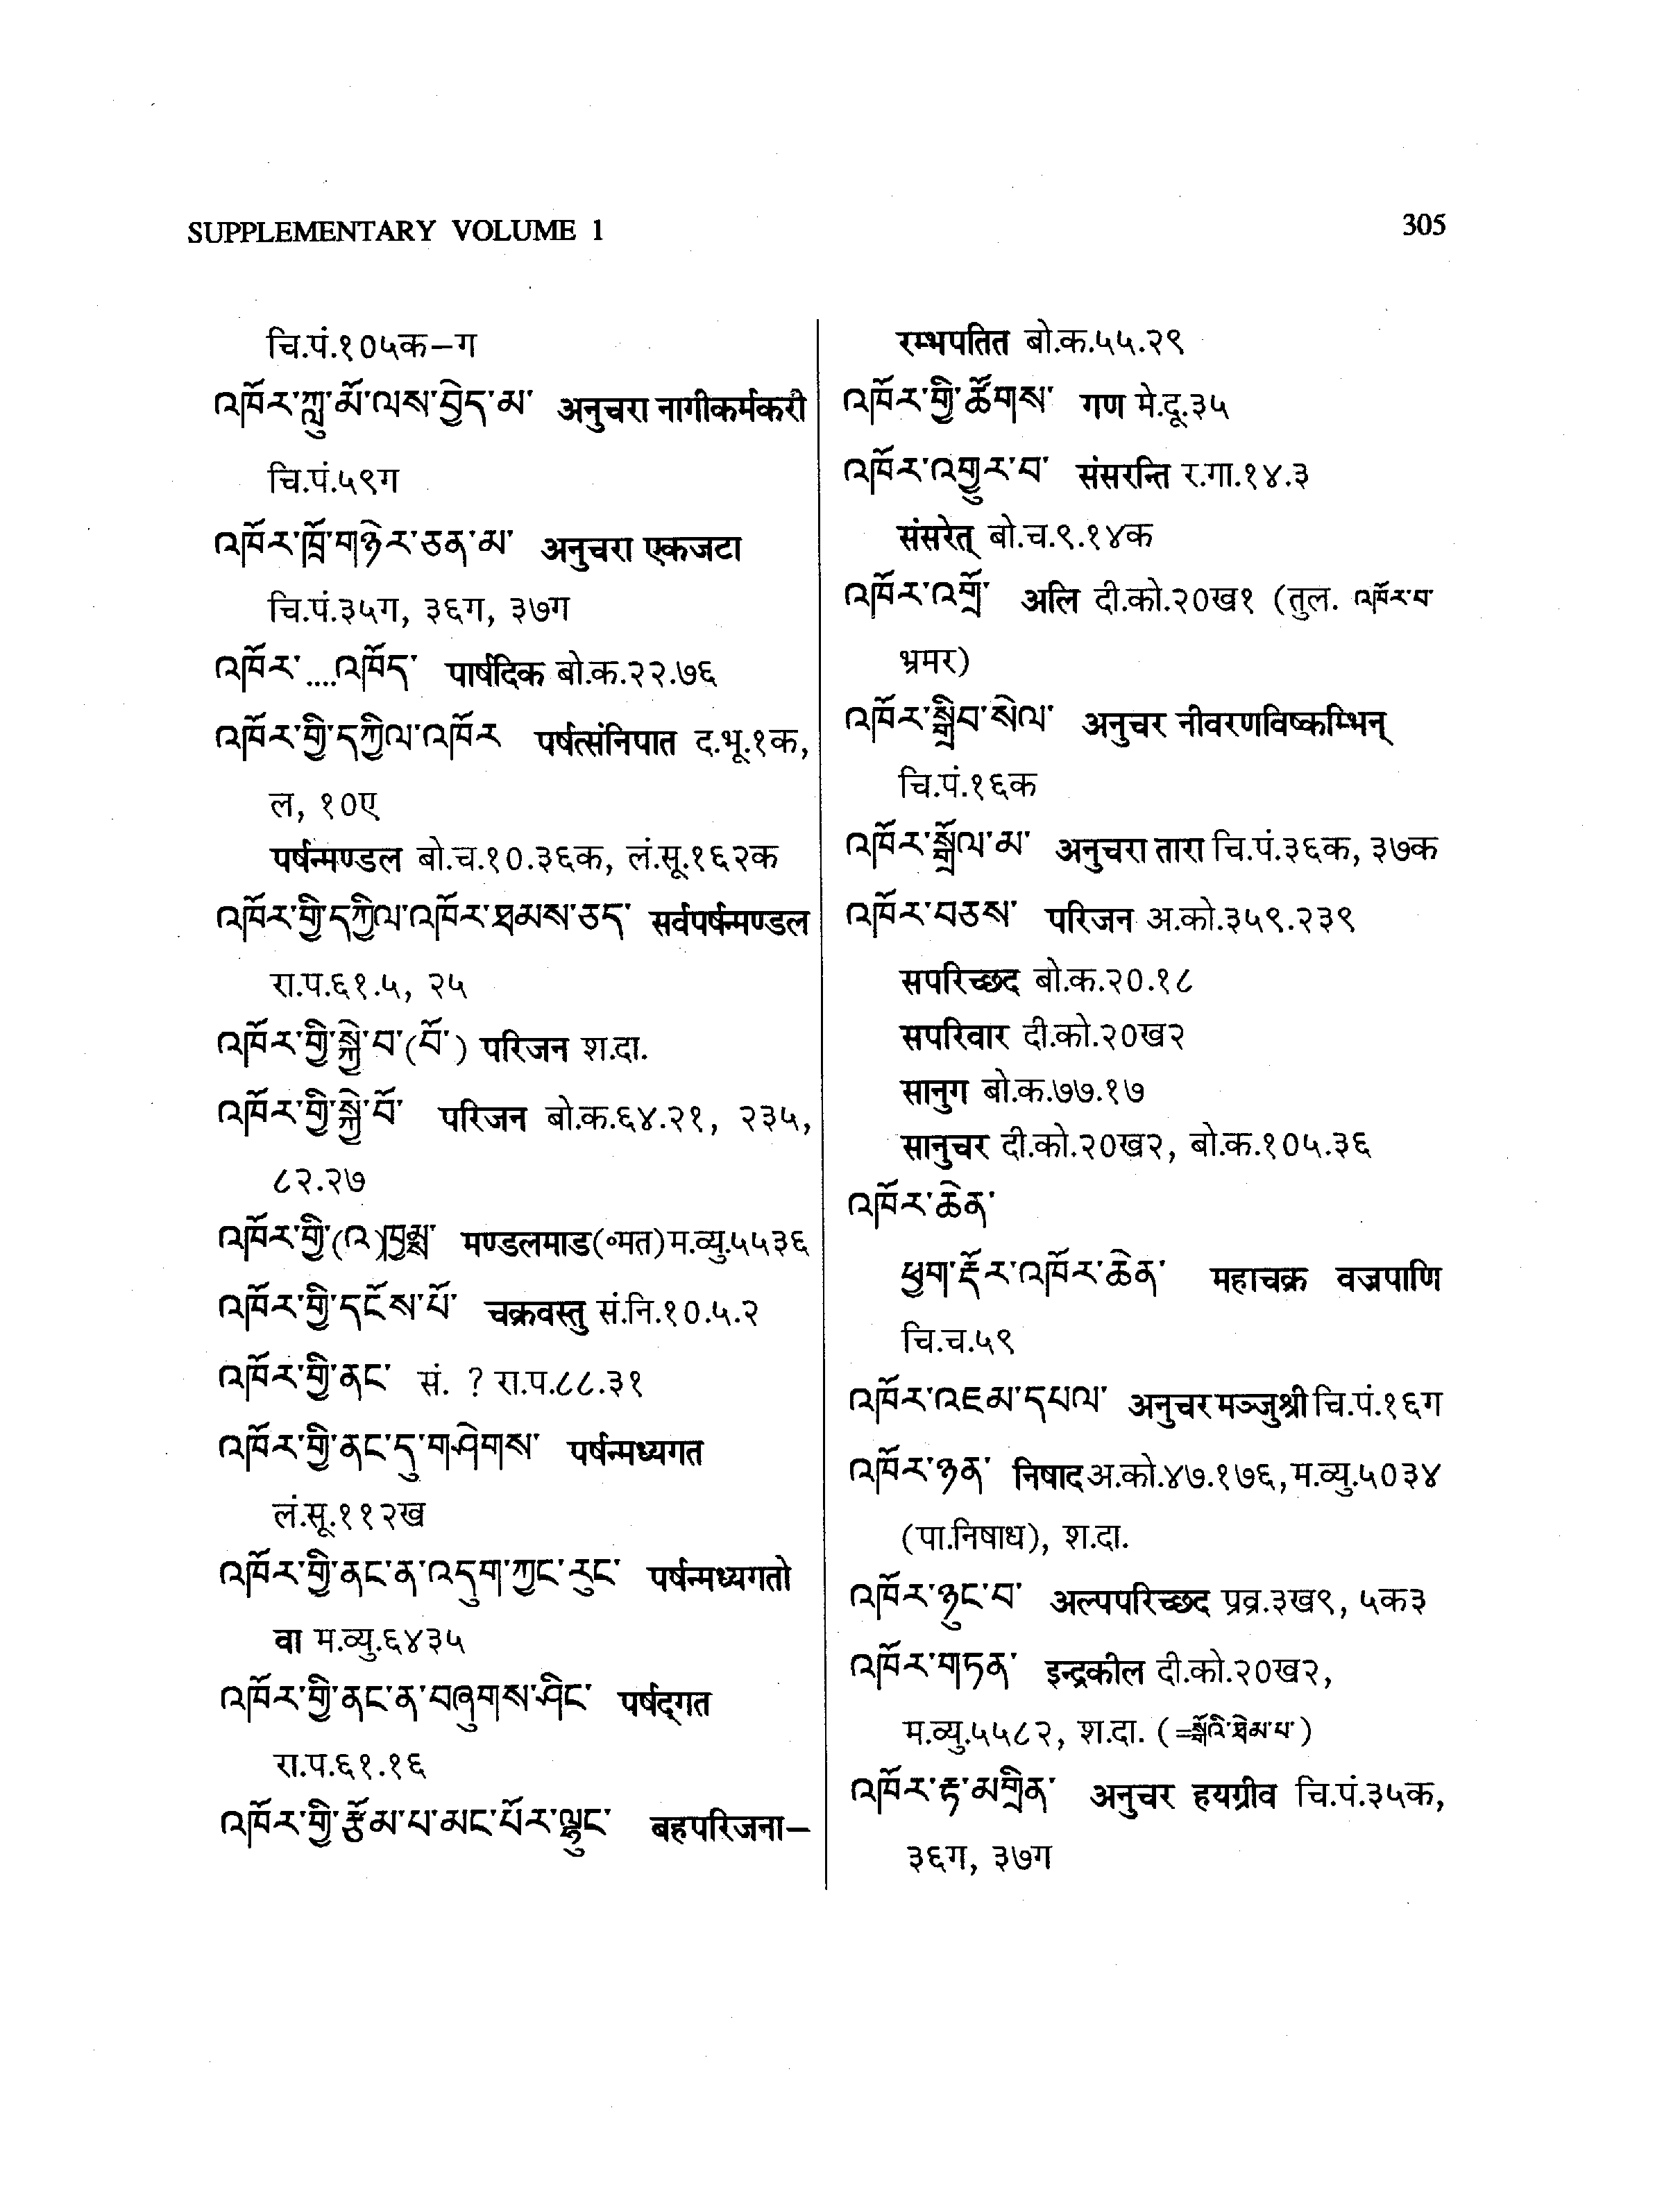 SUPPLEMENTARY VOLUME 1
305
चि.पं.१०५क–ग
འཁོར་ཀླུ་མོ་ལས་བྱེད་མ་ अनुचरा नागीकर्मकरी
चि.पं.५९ग
འཁོར་ཁྲོ་གཉེར་ཅན་མ་ अनुचरा एकजटा
चि.पं.३५ग, ३६ग, ३७ग
འཁོར་....འཁོད་ पार्षदिक बो.क.२२.७६
འཁོར་གྱི་དཀྱིལ་འཁོར पर्षत्संनिपात द.भू.१क,
ल, १०ए
पर्षन्मण्डल बो.च.१०.३६क, लं.सू.१६२क
འཁོར་གྱི་དཀྱིལ་འཁོར་ཐམས་ཅད་ सर्वपर्षन्मण्डल
रा.प.६१.५, २५
འཁོར་གྱི་སྐྱེ་བ་(བོ་) परिजन श.दा.
འཁོར་གྱི་སྐྱེ་བོ་ परिजन बो.क.६४.२१, २३५,
८२.२७
འཁོར་གྱི་(འ)ཁྱམྶ་ मण्डलमाड(०मत)म.व्यु.५५३६
འཁོར་གྱི་དངོས་པོ་ चक्रवस्तु सं.नि.१०.५.२
འཁོར་གྱི་ནང་ सं. ? रा.प.८८.३१
འཁོར་གྱི་ནང་དུ་གཤེགས་ पर्षन्मध्यगत
लं.सू.११२ख
འཁོར་གྱི་ནང་ན་འདུག་ཀྱང་རུང་ पर्षन्मध्यगतो
वा म.व्यु.६४३५
འཁོར་གྱི་ནང་ན་བཞུགས་ཤིང་ पर्षद्गत
रा.प.६१.१६
འཁོར་གྱི་རྩོམ་པ་མང་པོར་ལྷུང་ बहपरिजना–
रम्भपतित बो.क.५५.२९
འཁོར་གྱི་ཚོགས་ गण मे.दू.३५
འཁོར་འགྱུར་བ་ संसरन्ति र.गा.१४.३
संसरेत् बो.च.९.१४क
འཁོར་འགྲོ་ अलि दी.को.२०ख१ (तुल. འཁོར་བ་
भ्रमर)
འཁོར་སྒྲིབ་སེལ་ अनुचर नीवरणविष्कम्भिन्
चि.पं.१६क
འཁོར་སྒྲོལ་མ་ अनुचरा तारा चि.पं.३६क, ३७क
འཁོར་བཅས་ परिजन अ.को.३५९.२३९
सपरिच्छद बो.क.२०.१८
सपरिवार दी.को.२०ख२
सानुग बो.क.७७.१७
सानुचर दी.को.२०ख२, बो.क.१०५.३६
འཁོར་ཆེན་
ཕྱག་རྡོར་འཁོར་ཆེན་ महाचक्र वज्रपाणि
चि.च.५९
འཁོར་འཇམ་དཔལ་ अनुचर मञ्जुश्री चि.पं.१६ग
འཁོར་ཉན་ निषाद अ.को.४७.१७६, म.व्यु.५०३४
(पा.निषाध), श.दा.
འཁོར་ཉུང་བ་ अल्पपरिच्छद प्रव्र.३ख९, ५क३
འཁོར་གཏན་ इन्द्रकील दी.को.२०ख२,
म.व्यु.५५८२, श.दा. (=སྒོའི་ཐེམ་པ་)
འཁོར་རྟ་མགྲིན་ अनुचर हयग्रीव चि.पं.३५क,
३६ग, ३७ग